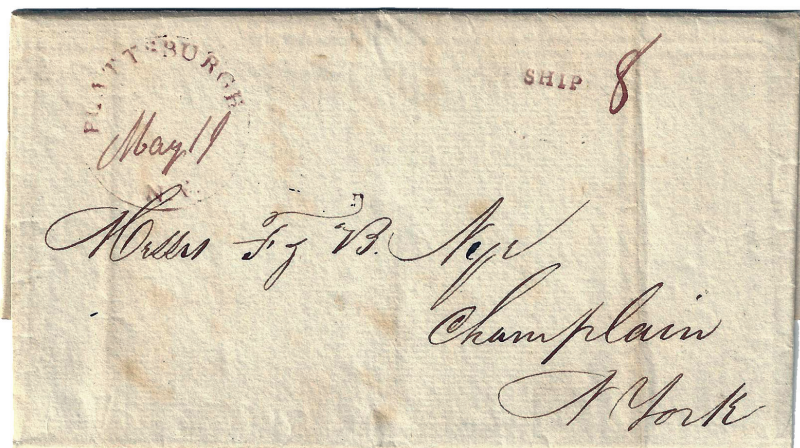 PLATTSBURGH
May 11
N.Y.
SHIP 8
Messrs F & B. Nye
Champlain
N York